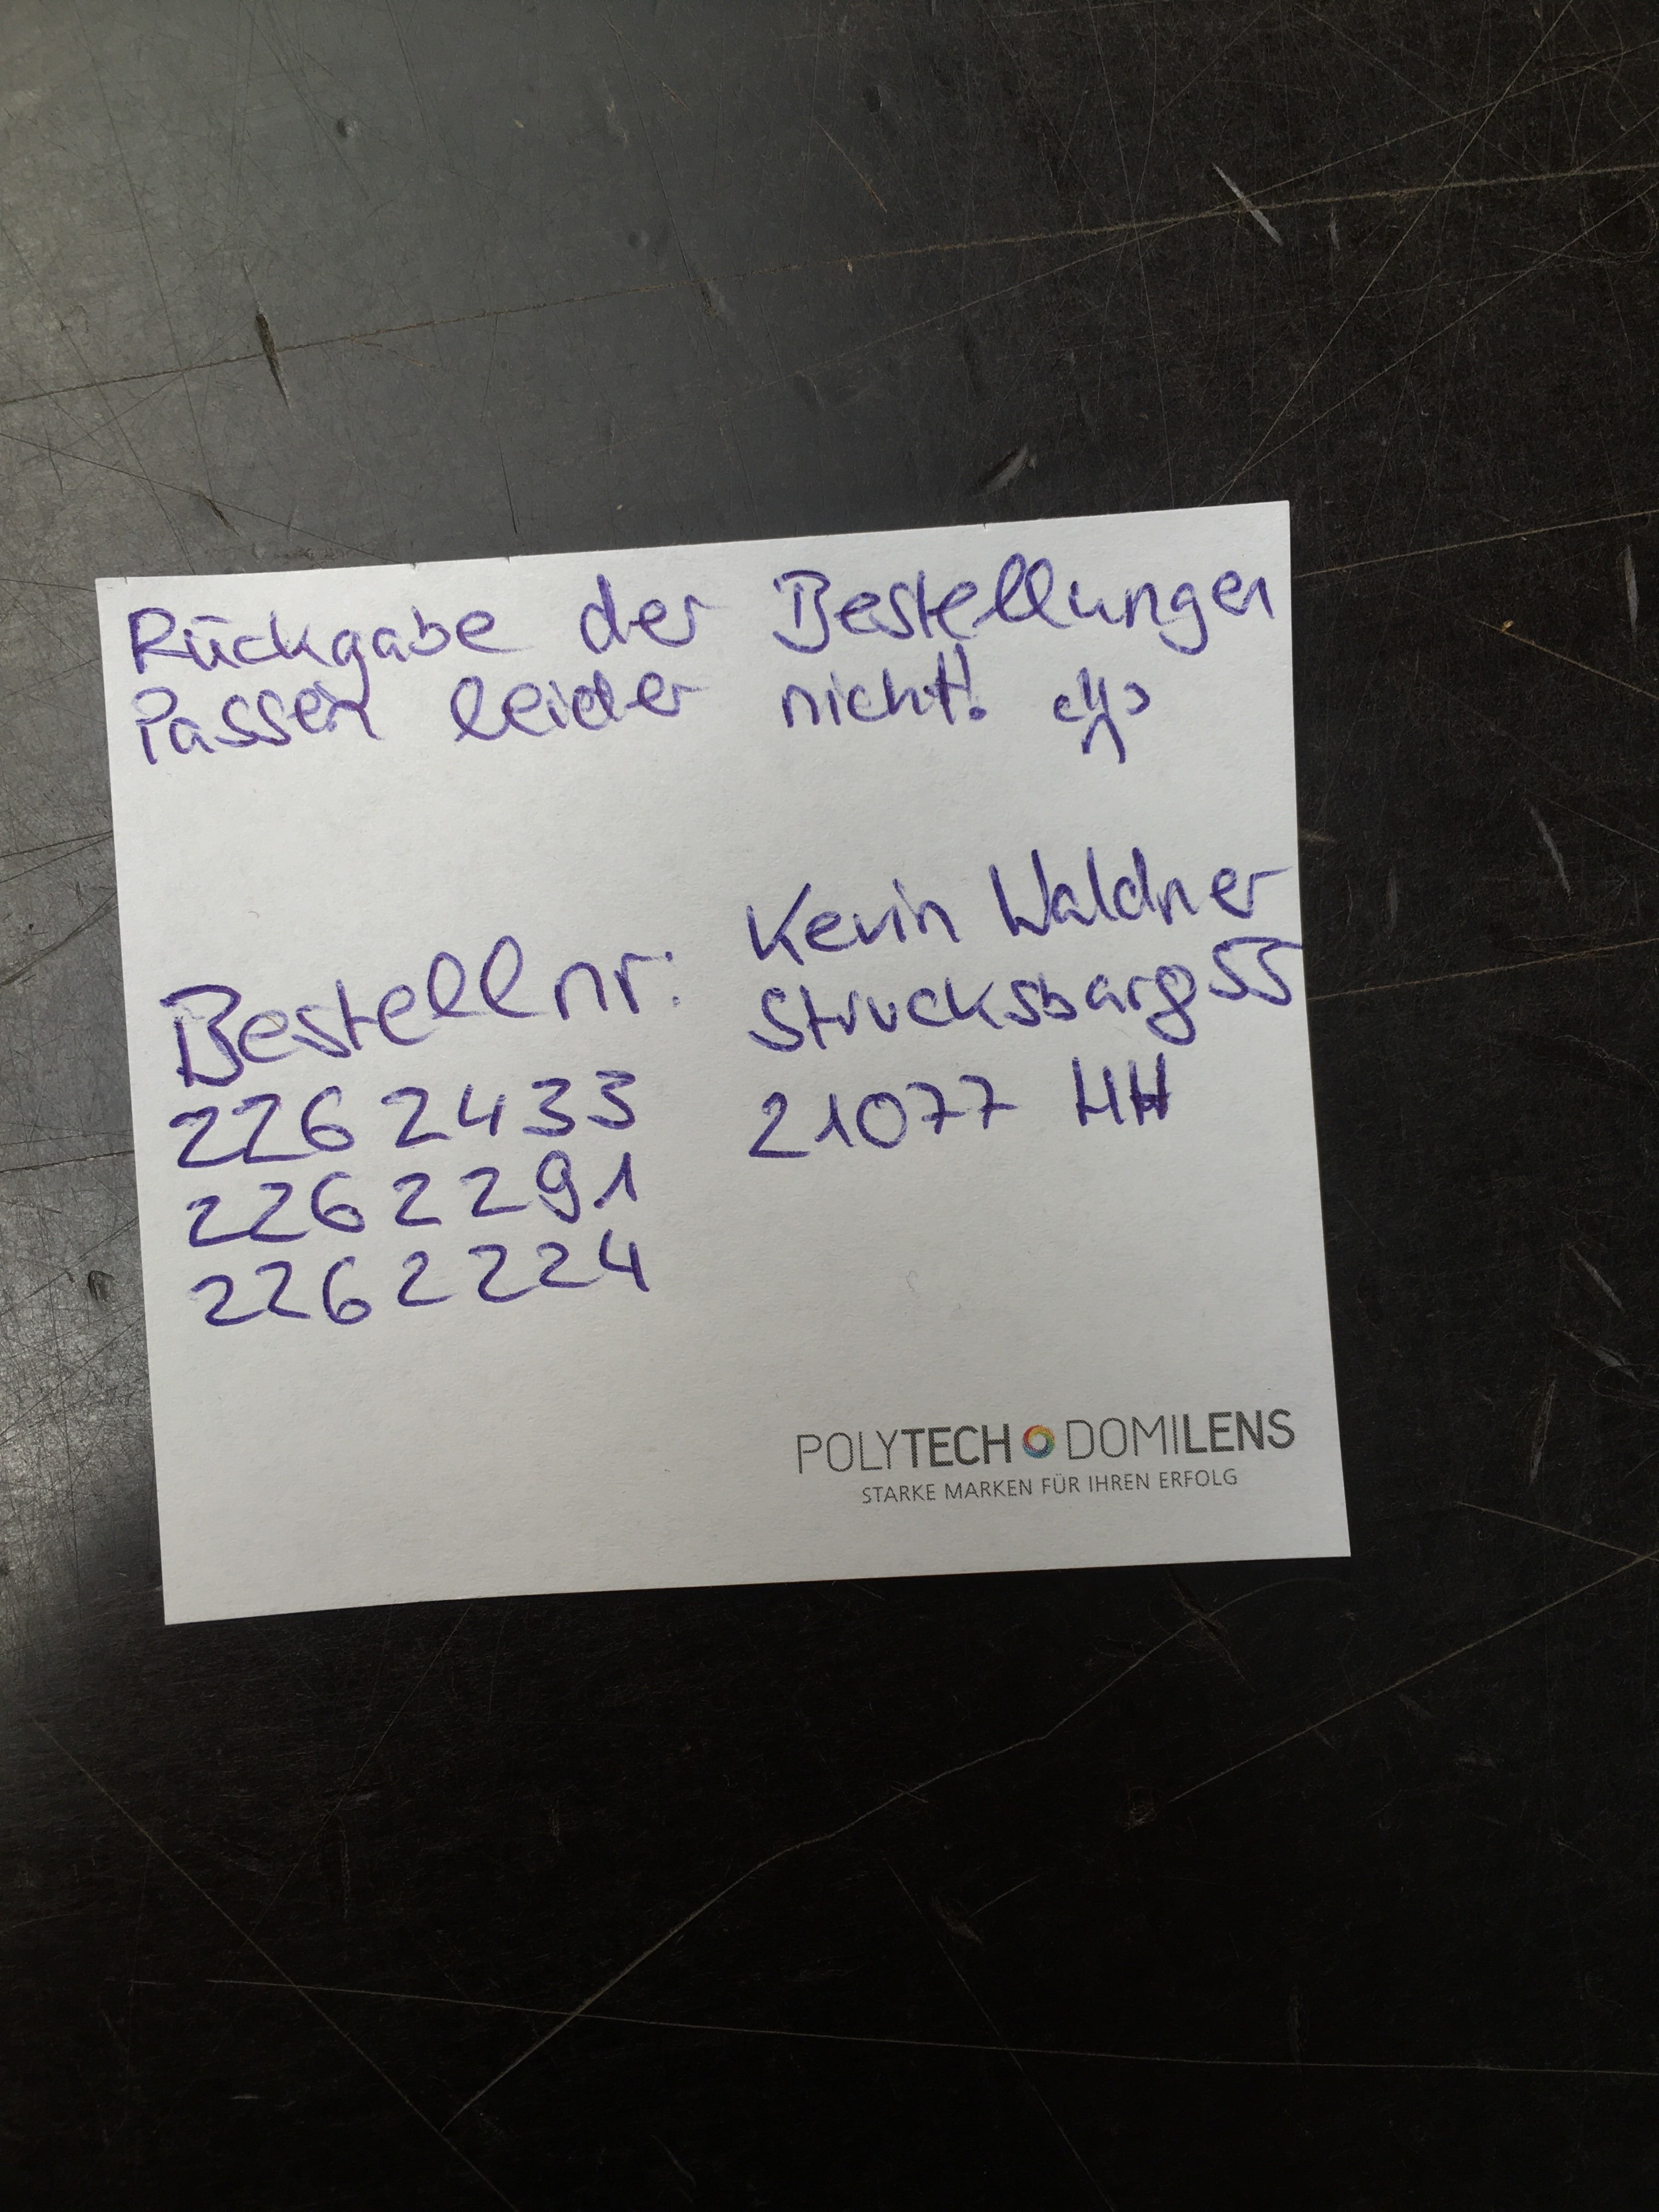 Rückgabe der Bestellungen
Passen leider nicht!
Kevin Waldner
Strucksbarg 55
21077 HH
Bestellnr:
2262433
2262291
2262224
POLYTECH DOMILENS
STARKE MARKEN FÜR IHREN ERFOLG